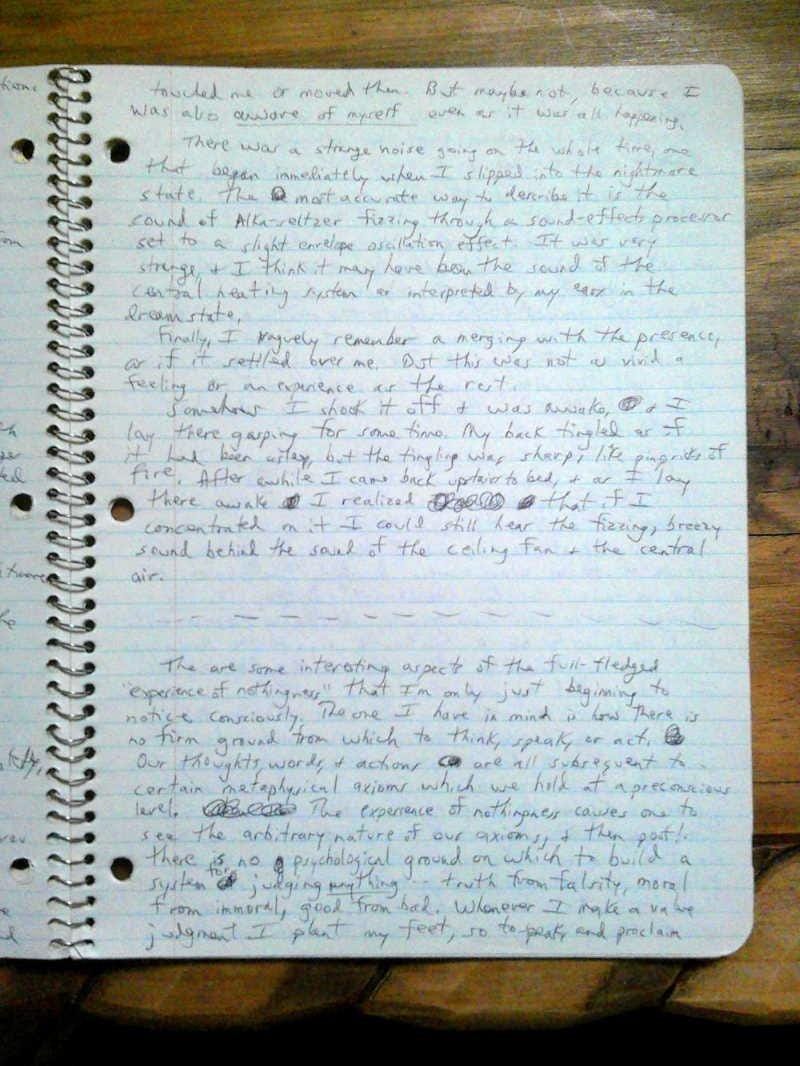 touched me or moved them. But maybe not, because I
was also aware of myself even as it was all happening.
There was a strange noise going on the whole time, one
that began immediately when I slipped into the nightmare
state. The most accurate way to describe it is the
sound of Alka-seltzer fizzing through a sound-effects processor
set to a slight envelope oscillation effect. It was very
strange, & I think it may have been the sound of the
central heating system as interpreted by my ears in the
dream state.
Finally, I vaguely remember a merging with the presence,
as if it settled over me. But this was not as vivid a
feeling or an experience as the rest.
Somehow I shook it off & was awake, & I
lay there gasping for some time. My back tingled as if
it had been asleep, but the tingling was sharp, like pinpricks of
fire. After awhile I came back upstairs to bed, & as I lay
there awake I realized that if I
concentrated on it I could still hear the fizzing, breezy
sound behind the sound of the ceiling fan & the central
air.
The are some interesting aspects of the full-fledged
"experience of nothingness" that I'm only just beginning to
notice consciously. The one I have in mind is how there is
no firm ground from which to think, speak, or act.
Our thoughts, words, & actions are all subsequent to
certain metaphysical axioms which we hold at a preconscious
level. The experience of nothingness causes one to
see the arbitrary nature of our axioms, & then poof!
there is no psychological ground on which to build a
system for judging anything -- truth from falsity, moral
from immoral, good from bad. Whenever I make a value
judgment I plant my feet, so to speak, and proclaim